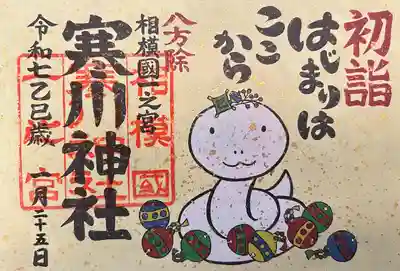 初詣
はじまりは
ここから
八方除
相模國一之宮
寒川神社
令和七乙巳歳 一月二十五日